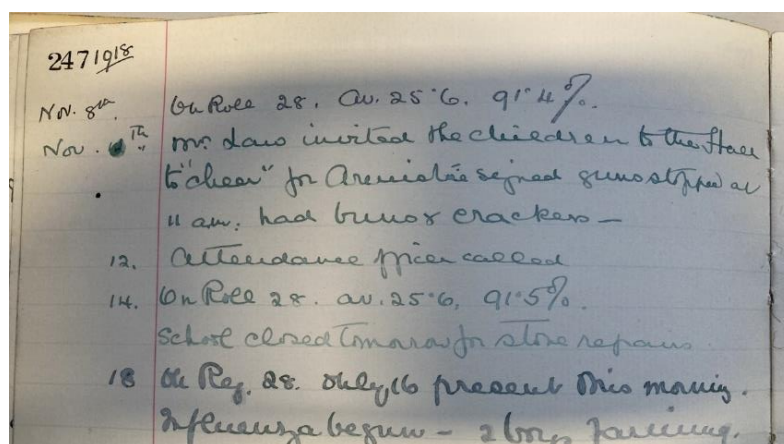 247 1918
Nov. 8th. On Roll 28. Av. 25·6. 91·4%.
Nov. th " Mr. Laws invited the children to the Hall
to "cheer" for Armistice signed guns stopped at
11 am. had buns & crackers —
12. Attendance officer called
14. On Roll 28. av. 25·6, 91·5%.
School closed tomorrow for stove repairs.
18 On Reg. 28. Only 16 present this morning.
Influenza begun — 2 boys